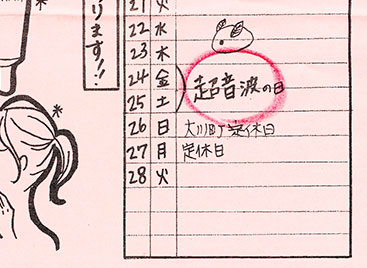 ります!!
21 火
22 水
23 木
24 金
25 土
超音波の日
26 日 大川町定休日
27 月 定休日
28 火